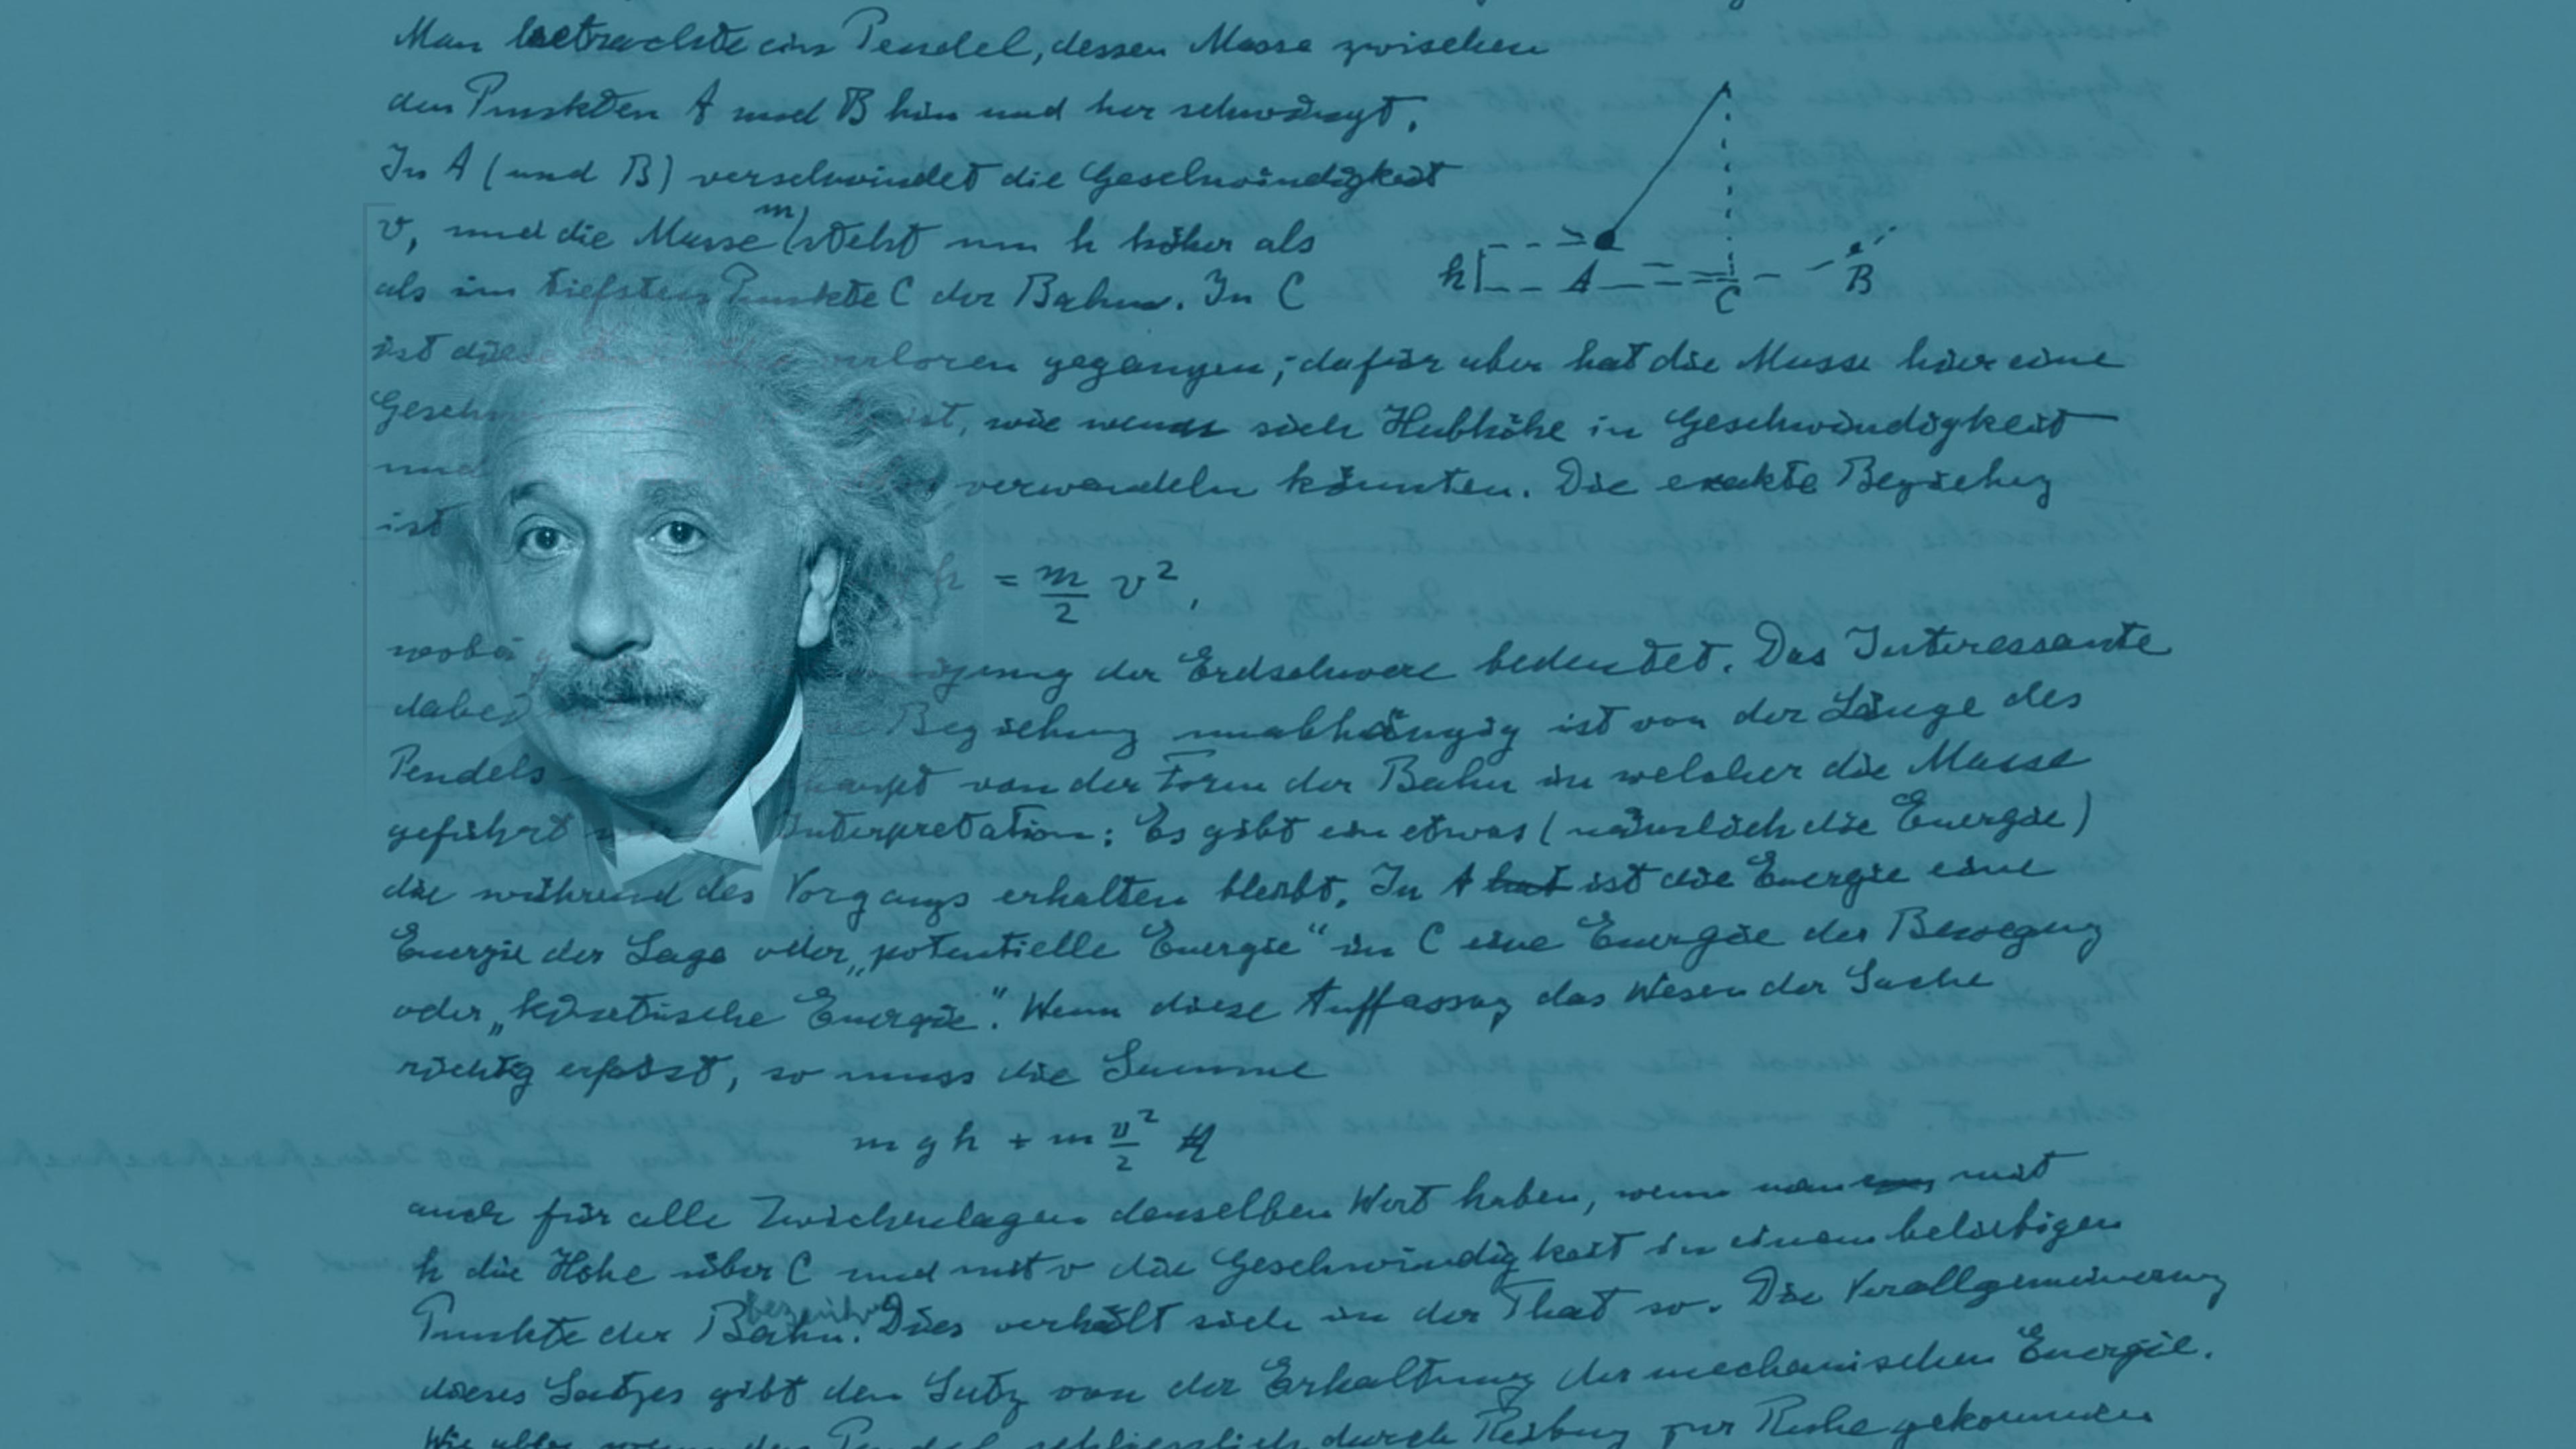 Man betrachte ein Pendel, dessen Masse zwischen
den Punkten A und B hin und her schwingt.
In A (und B) verschwindet die Geschwindigkeit
v, und die Masse m steht um h höher als
als im tiefsten Punkte C der Bahn. In C
h A C B
ist diese verloren gegangen; dafür aber hat die Masse hier eine
ist, wie wenn sich Hubhöhe in Geschwindigkeit
und verwandeln könnten. Die exakte Beziehung
ist
h = m/2 v²,
wobei g der Erdschwere bedeutet. Das Interessante
dabei Beziehung unabhängig ist von der Länge des
Pendels von der Form der Bahn in welcher die Masse
geführt Interpretation: Es gibt ein etwas (nämlich die Energie)
die während des Vorgangs erhalten bleibt. In A hat ist die Energie eine
Energie der Lage oder „potentielle Energie“ in C eine Energie der Bewegung
oder „kinetische Energie“. Wenn diese Auffassung das Wesen der Sache
richtig erfasst, so muss die Summe
m g h + m v²/2
auch für alle Zwischenlagen denselben Wert haben, wenn man mit
h die Höhe über C und mit v die Geschwindigkeit in einem beliebigen
Punkte der Bahn bezeichnet. Dies verhält sich in der That so. Die Verallgemeinerung
dieses Satzes gibt den Satz von der Erhaltung der mechanischen Energie.
Wie aber, wenn das Pendel schliesslich durch Reibung zur Ruhe gekommen